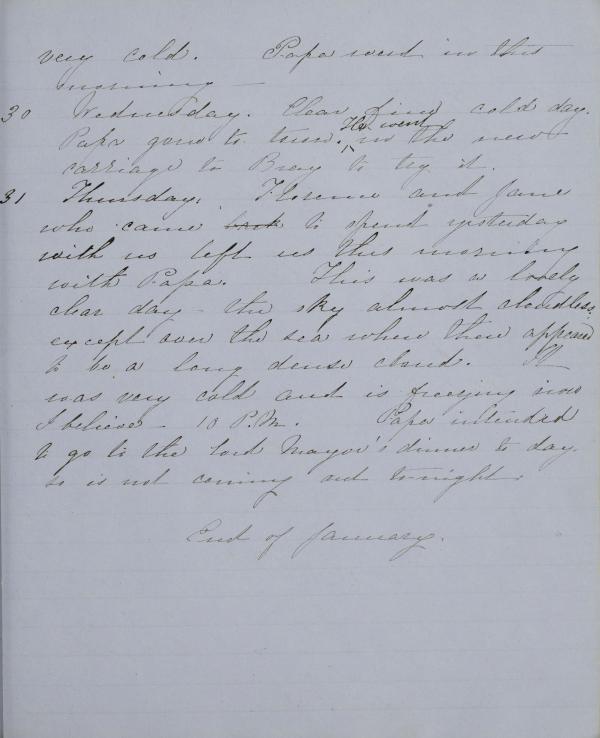 very cold. Papa went in this
morning —
30 Wednesday. Clear fine cold day.
Papa gone to town. He went in the new
carriage to Bray to try it.
31 Thursday. Florence and Jane
who came back to spent yesterday
with us left us this morning
with Papa. This was a lovely
clear day – the sky almost cloudless.
except over the sea where there appeared
to be a long dense cloud. It
was very cold and is freezing now
I believe – 10 P.M. Papa intended
to go to the Lord Mayor's dinner to day.
so is not coming out tonight.
End of January.